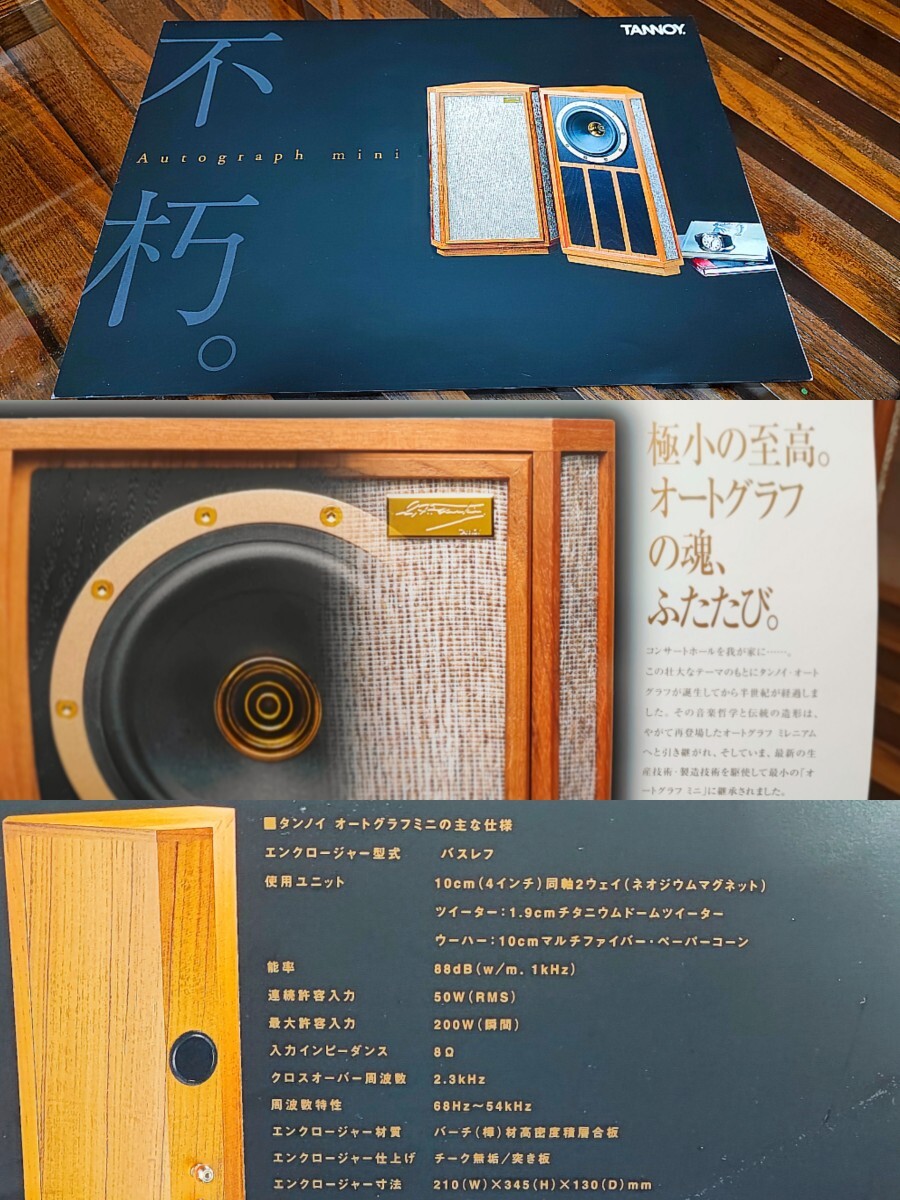 TANNOY
不
Autograph mini
朽。
極小の至高。
オートグラフ
の魂、
ふたたび。
コンサートホールを我が家に……。
この壮大なテーマのもとにタンノイ・オート
グラフが誕生してから半世紀が経過しま
した。その音楽哲学と伝統の造形は、
やがて再登場したオートグラフ ミレニアム
へと引き継がれ、そしていま、最新の生
産技術・製造技術を駆使して最小の「オ
ートグラフ ミニ」に継承されました。
■タンノイ オートグラフミニの主な仕様
エンクロージャー型式 バスレフ
使用ユニット 10cm(4インチ)同軸2ウェイ(ネオジウムマグネット)
ツイーター:1.9cmチタニウムドームツイーター
ウーハー:10cmマルチファイバー・ペーパーコーン
能率 88dB(w/m. 1kHz)
連続許容入力 50W(RMS)
最大許容入力 200W(瞬間)
入力インピーダンス 8Ω
クロスオーバー周波数 2.3kHz
周波数特性 68Hz〜54kHz
エンクロージャー材質 バーチ(樺)材高密度積層合板
エンクロージャー仕上げ チーク無垢/突き板
エンクロージャー寸法 210(W)×345(H)×130(D)mm